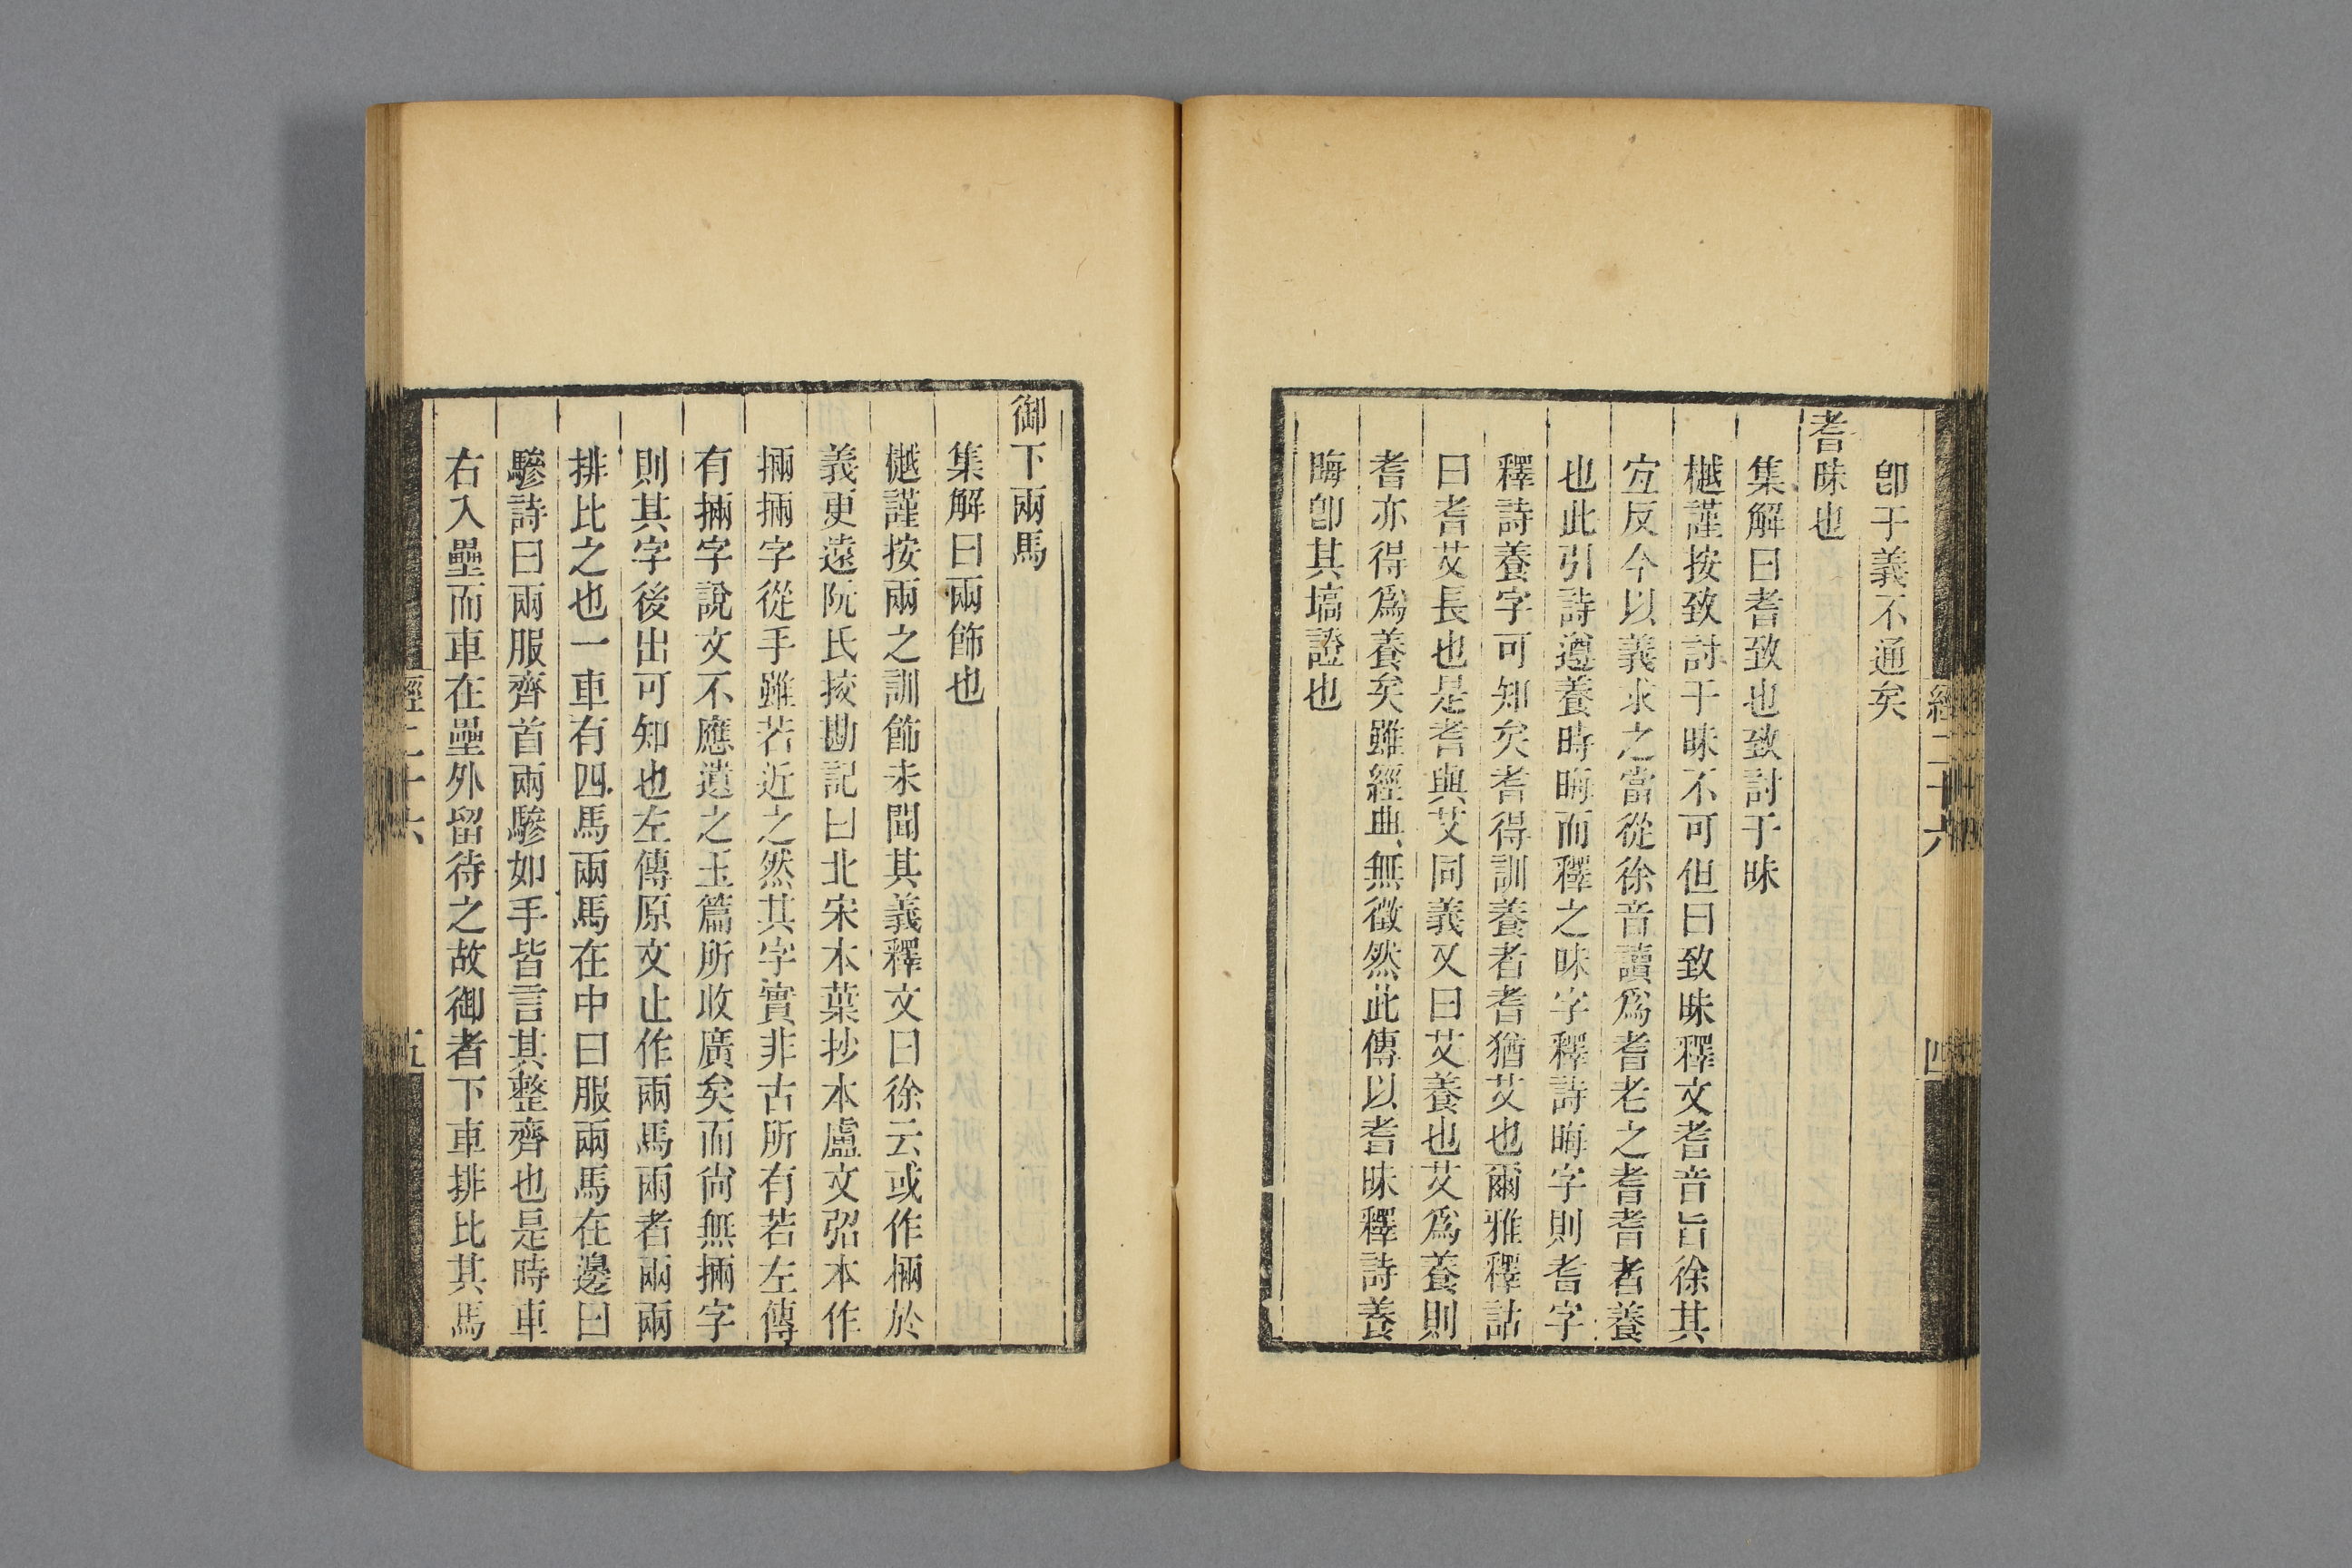 卽于義不通矣
耆昧也
集解曰耆致也致討于昧
樾謹按致討于昧不可但曰致昧釋文耆音旨徐其
宜反今以義求之當從徐音讀爲耆老之耆耆者養
也此引詩遵養時晦而釋之昧字釋詩晦字則耆字
釋詩養字可知矣耆得訓養者耆猶艾也爾雅釋詁
曰耆艾長也是耆與艾同義又曰艾養也艾爲養則
耆亦得爲養矣雖經典無徵然此傳以耆昧釋詩養
晦卽其塙證也
經二十六
四
御下兩馬
集解曰兩飾也
樾謹按兩之訓飾未聞其義釋文曰徐云或作㮇於
義更遠阮氏挍勘記曰北宋本葉抄本盧文弨本作
掚掚字從手雖若近之然其字實非古所有若左傳
有掚字說文不應遺之玉篇所收廣矣而尙無掚字
則其字後出可知也左傳原文止作兩馬兩者兩兩
排比之也一車有四馬兩馬在中曰服兩馬在邊曰
驂詩曰兩服齊首兩驂如手皆言其整齊也是時車
右入壘而車在壘外留待之故御者下車排比其馬
經二十六
五